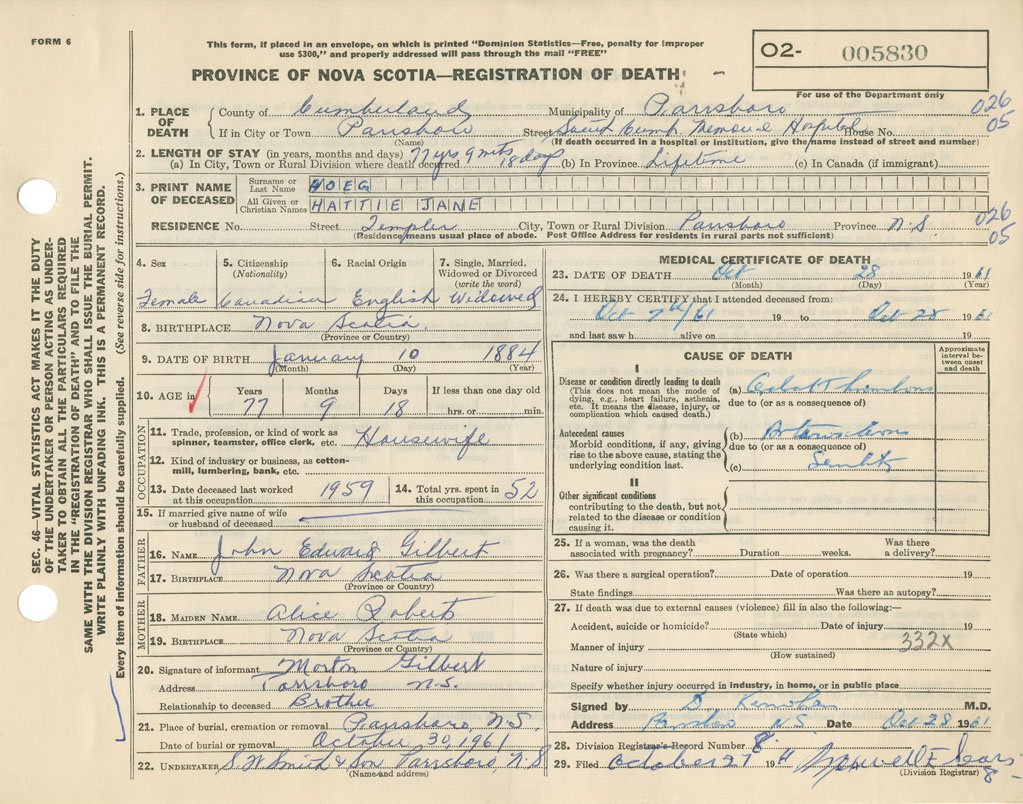 FORM 6
This form, if placed in an envelope, on which is printed "Dominion Statistics—Free, penalty for improper
use $300," and properly addressed will pass through the mail "FREE"
O2- 005830
For use of the Department only
PROVINCE OF NOVA SCOTIA—REGISTRATION OF DEATH
SEC. 46—VITAL STATISTICS ACT MAKES IT THE DUTY
OF THE UNDERTAKER OR PERSON ACTING AS UNDER-
TAKER TO OBTAIN ALL THE PARTICULARS REQUIRED
IN THE "REGISTRATION OF DEATH" AND TO FILE THE
SAME WITH THE DIVISION REGISTRAR WHO SHALL ISSUE THE BURIAL PERMIT.
WRITE PLAINLY WITH UNFADING INK. THIS IS A PERMANENT RECORD.
Every item of information should be carefully supplied. (See reverse side for instructions.)
1. PLACE OF DEATH
County of Cumberland Municipality of Parrsboro 026
If in City or Town Parrsboro Street South Cumb. Memorial Hospital House No. 05
(Name) (If death occurred in a hospital or institution, give the name instead of street and number)
2. LENGTH OF STAY (in years, months and days)
(a) In City, Town or Rural Division where death occurred 77 yrs 9 mts 18 days (b) In Province Lifetime (c) In Canada (if immigrant)
3. PRINT NAME OF DECEASED
Surname or Last Name HOEG
All Given or Christian Names HATTIE JANE
RESIDENCE No. Street City, Town or Rural Division Parrsboro Province N.S 026
(Residence means usual place of abode. Post Office Address for residents in rural parts not sufficient) 05
4. Sex Female
5. Citizenship (Nationality) Canadian
6. Racial Origin English
7. Single, Married, Widowed or Divorced (write the word) Widowed
8. BIRTHPLACE Nova Scotia.
(Province or Country)
9. DATE OF BIRTH January 10 1884
(Month) (Day) (Year)
10. AGE in
Years Months Days If less than one day old
77 9 18 hrs. or min.
OCCUPATION
11. Trade, profession, or kind of work as
spinner, teamster, office clerk, etc. Housewife
12. Kind of industry or business, as cotton-
mill, lumbering, bank, etc.
13. Date deceased last worked at this occupation 1959
14. Total yrs. spent in this occupation 52
15. If married give name of wife
or husband of deceased
FATHER
16. NAME John Edward Gilbert
17. BIRTHPLACE Nova Scotia
(Province or Country)
MOTHER
18. MAIDEN NAME Alice Roberts
19. BIRTHPLACE Nova Scotia
(Province or Country)
20. Signature of informant Morton Gilbert
Address Parrsboro N.S.
Relationship to deceased Brother
21. Place of burial, cremation or removal Parrsboro, N.S.
Date of burial or removal October 30, 1961
22. UNDERTAKER S. W Smith & Son Parrsboro, N.S
(Name and address)
MEDICAL CERTIFICATE OF DEATH
23. DATE OF DEATH Oct 28 1961
(Month) (Day) (Year)
24. I HEREBY CERTIFY that I attended deceased from:
Oct 7th/61 19 to Oct 28 1961
and last saw h alive on 19
CAUSE OF DEATH
Approximate interval between onset and death
I
Disease or condition directly leading to death
(This does not mean the mode of
dying, e.g., heart failure, asthenia,
etc. It means the disease, injury, or
complication which caused death.)
(a)
due to (or as a consequence of)
Antecedent causes
Morbid conditions, if any, giving
rise to the above cause, stating the
underlying condition last.
(b)
due to (or as a consequence of)
(c)
II
Other significant conditions
contributing to the death, but not
related to the disease or condition
causing it.
25. If a woman, was the death associated with pregnancy? Duration weeks. Was there a delivery?
26. Was there a surgical operation? Date of operation 19
State findings Was there an autopsy?
27. If death was due to external causes (violence) fill in also the following:—
Accident, suicide or homicide? Date of injury 19
(State which)
Manner of injury 332X
(How sustained)
Nature of injury
Specify whether injury occurred in industry, in home, or in public place
Signed by M.D.
Address N.S Date Oct 28 1961
28. Division Registrar's Record Number 8
29. Filed October 27 19
(Division Registrar)
8